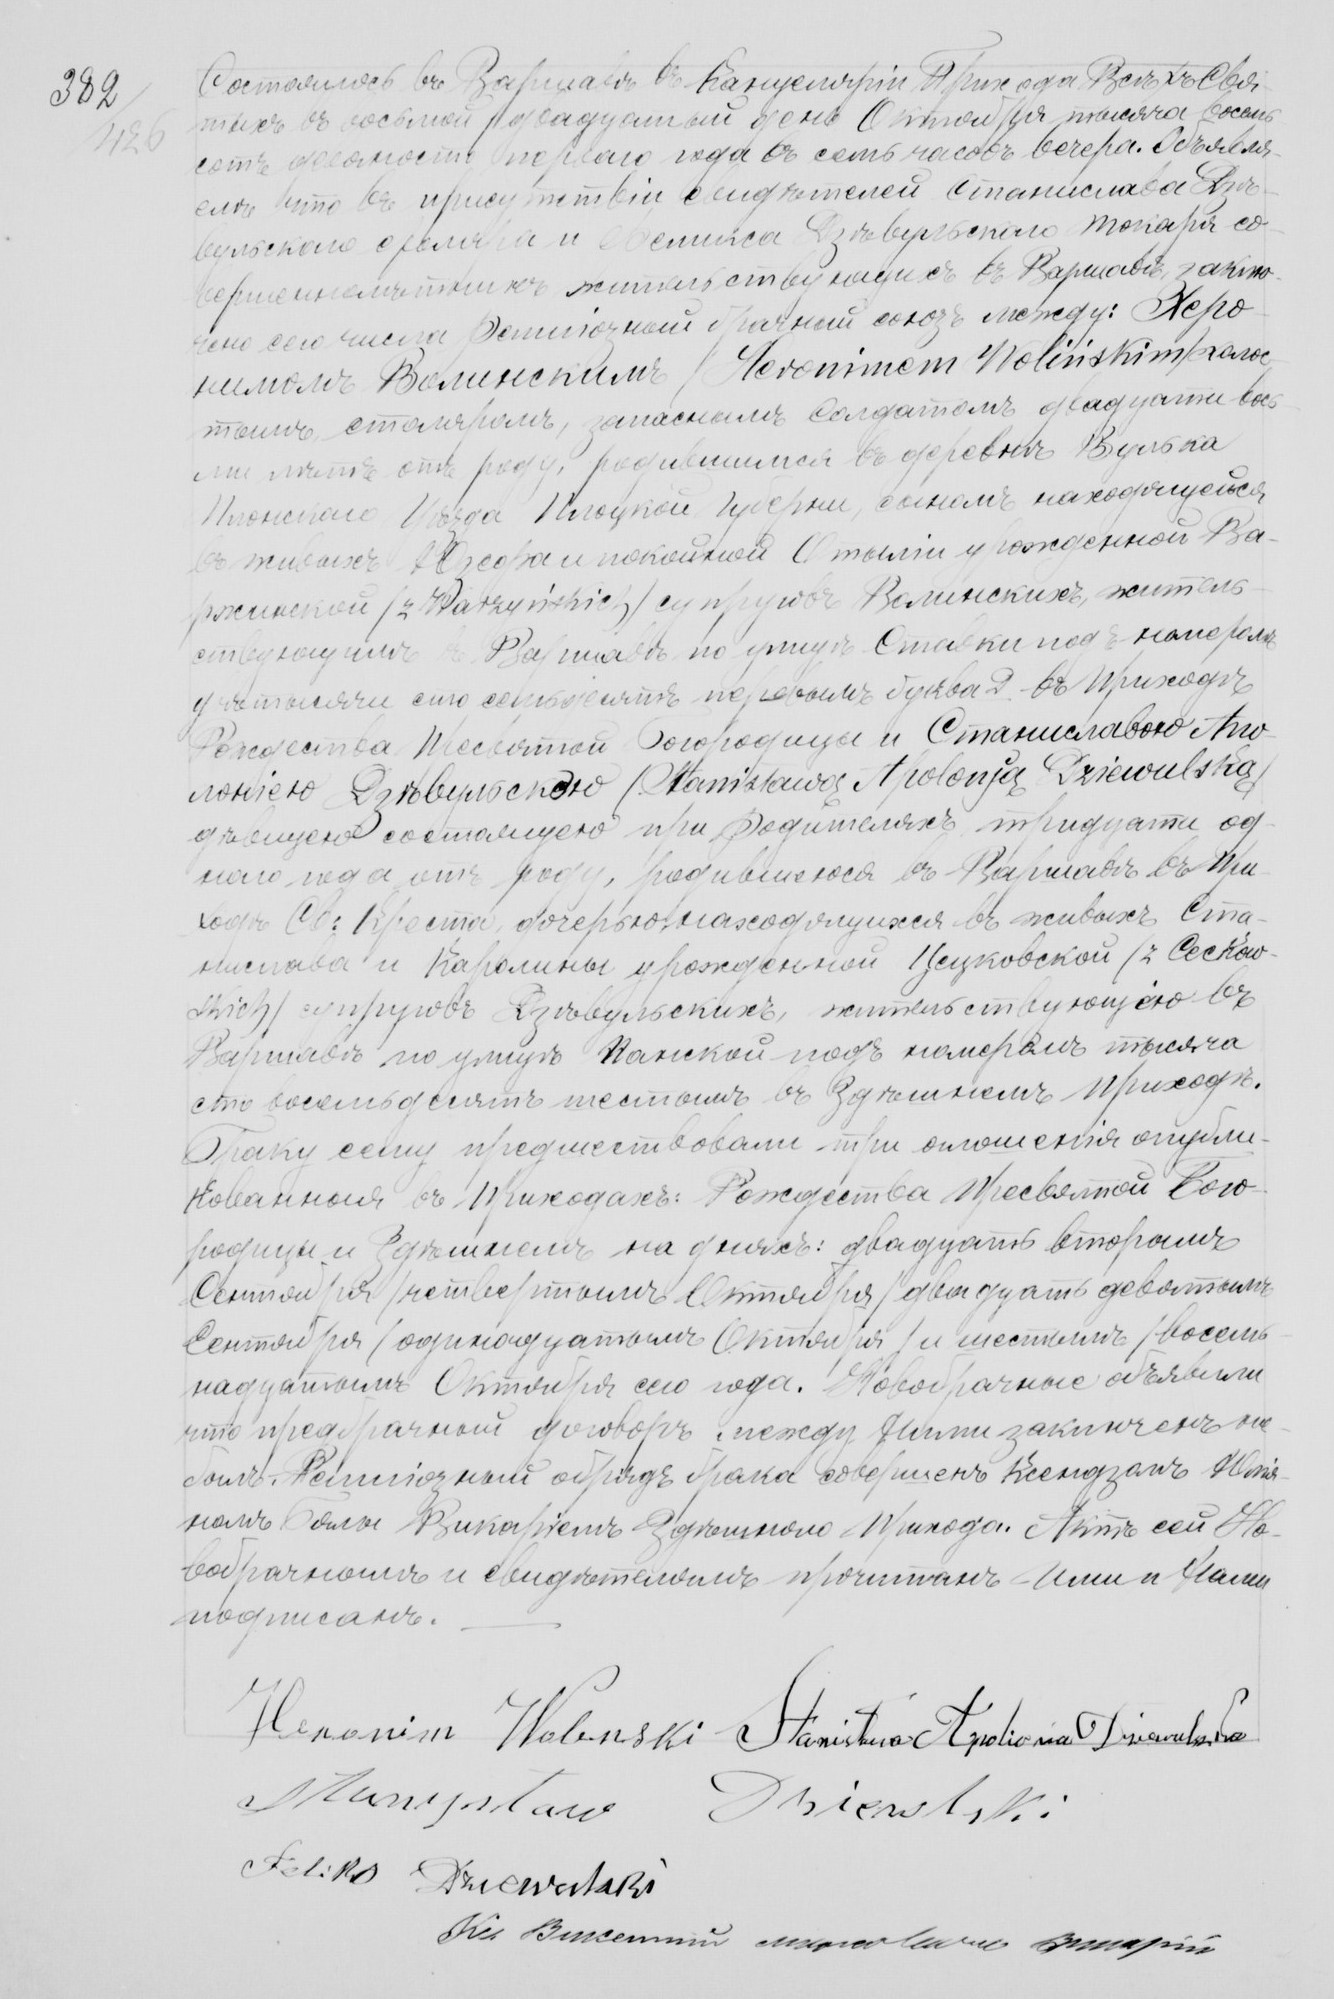 382
426
Состоялось въ Варшавѣ въ Канцеляріи Прихода Всѣхъ Свя-
тыхъ въ восьмой /двадцатый день Октября тысяча восемь
сотъ девяносто перваго года въ семь часовъ вечера. Объявля-
емъ что въ присутствіи свидѣтелей Станислава Дзѣ-
вульскаго столяра и Феликса Дзѣвульскаго токаря со-
вершеннолѣтнихъ жительствующихъ въ Варшавѣ, заклю-
чено сего числа Религіозный брачный союзъ между: Херо-
нимомъ Волинскимъ /Heronimem Wolińskim/ холос-
тымъ, столяромъ, запаснымъ солдатомъ двадцати вось-
ми лѣтъ отъ роду, родившимся въ деревнѣ Вулька
Плонскаго Уѣзда Плоцкой Губерніи, сыномъ находящейся
въ живыхъ Юзефа и покойной Отыліи урожденной Ва-
ржинской /z Warzyńskich/ супруговъ Волинскихъ, житель-
ствующимъ въ Варшавѣ по улицѣ Ставки подъ номеромъ
двѣтысячи сто семьдесятъ первымъ буква D въ Приходѣ
Рождества Пресвятой Богородицы и Станиславою Апо-
лоніею Дзѣвульскою /Stanisławą Apolonją Dziewulską/
дѣвицею состоящею при Родителяхъ тридцати од-
ного года отъ роду, родившеюся въ Варшавѣ въ При-
ходѣ Св: Креста, дочерью находящихся въ живыхъ Ста-
нислава и Каролины урожденной Цецковской /z Ceckow-
skich/ супруговъ Дзѣвульскихъ, жительствующею въ
Варшавѣ по улицѣ Панской подъ номеромъ тысяча
сто восемьдесятъ шестымъ въ Здѣшнемъ Приходѣ.
Браку сему предшествовали три оглашенія опубли-
кованныя въ Приходахъ: Рождества Пресвятой Бого-
родицы и Здѣшнемъ на дняхъ: двадцать вторымъ
Сентября /четвертымъ Октября/ двадцать девятымъ
Сентября /одинадцатымъ Октября/ и шестымъ /восем-
надцатымъ Октября сего года. Новобрачные объявили
что предбрачный договоръ между ними заключенъ не
былъ. Религіозный обрядъ брака совершенъ Ксендзомъ Юлія-
номъ Викаріемъ Здѣшняго Прихода. Актъ сей Но-
вобрачнымъ и свидѣтелямъ прочитанъ Ими и Нами
подписанъ.
Heronim Wolenski Stanisława Apolionia Dziewulska
Stanysław Dziewlski
Feliks Dziewulski
Кс Викентій викарій